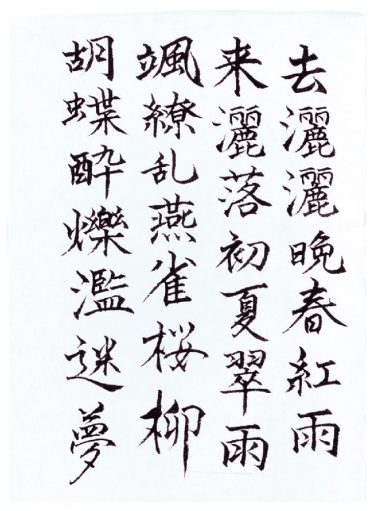 去灑灑晩春紅雨
来灑落初夏翠雨
颯繚乱燕雀桜柳
胡蝶酔爍濫迷夢